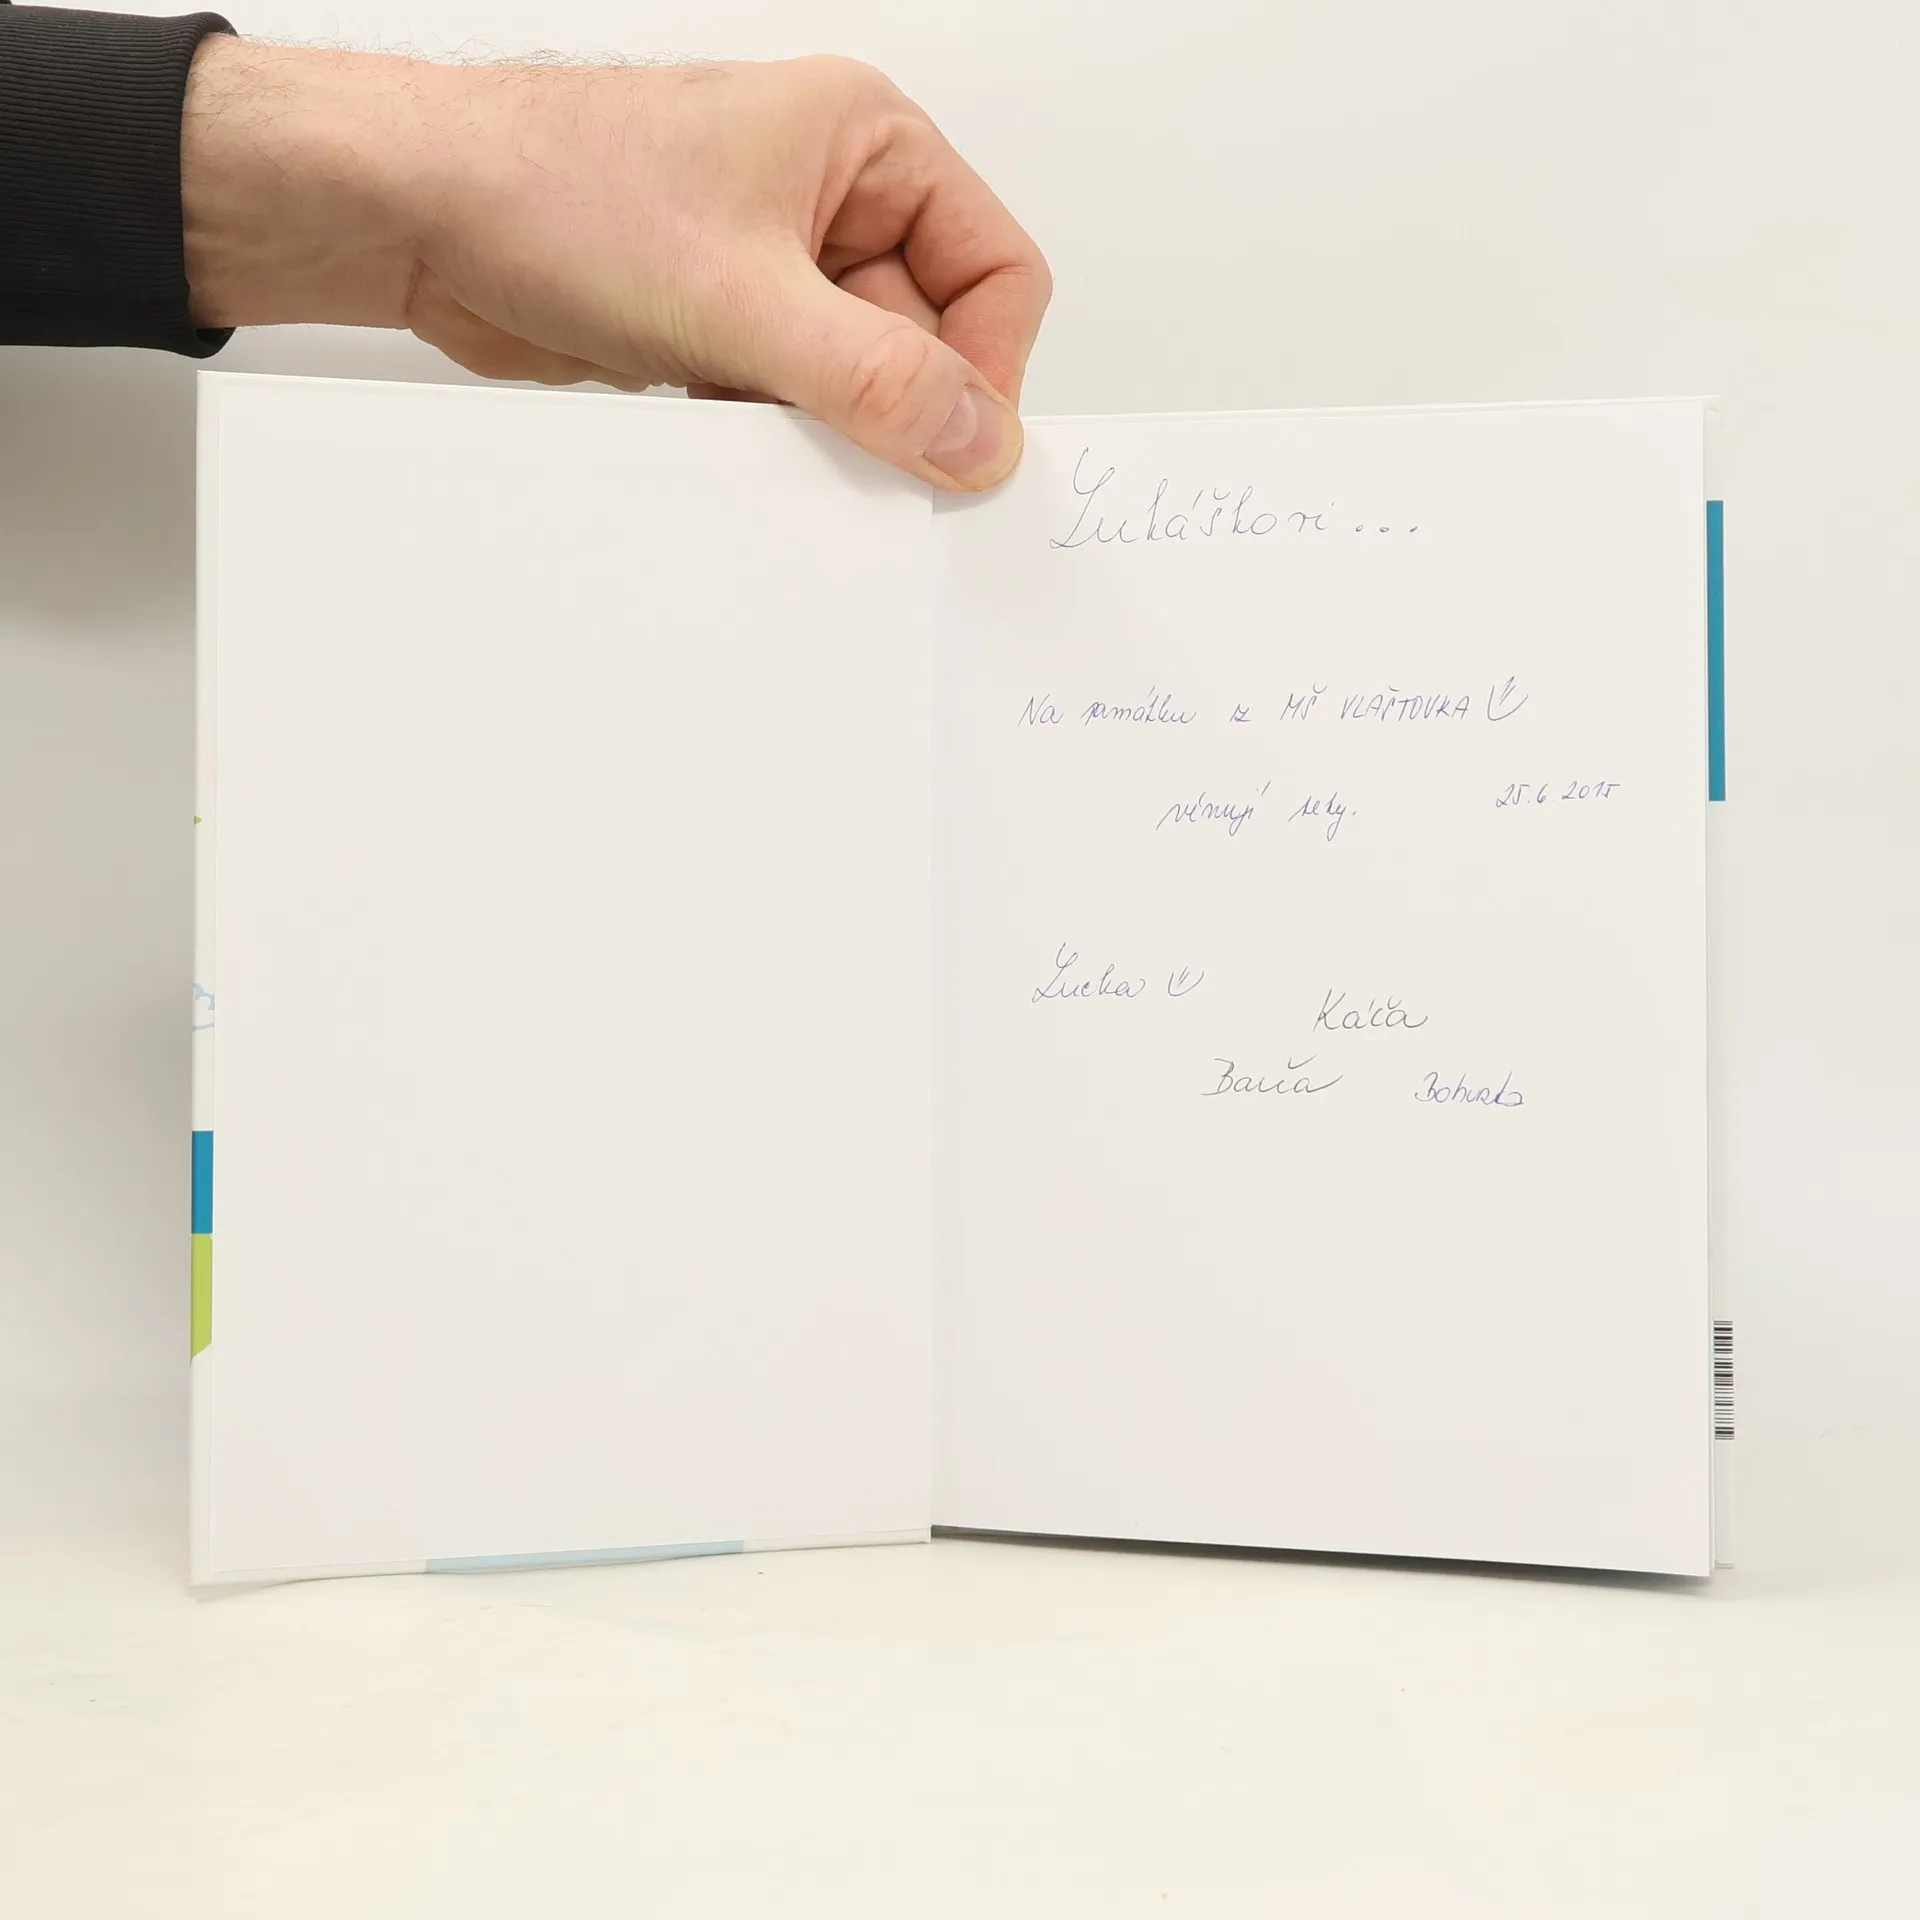 Lukáškovi...
Na památku z MŠ VLAŠTOVKA
věnují tety. 25.6.2015
Lucka
Káča
Barča Bohunka